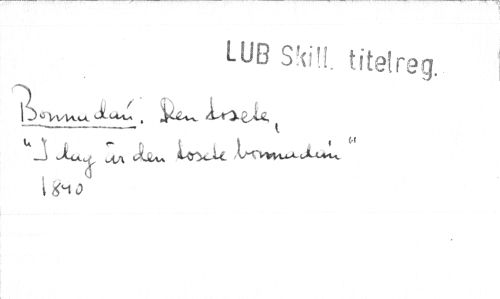 LUB Skill. titelreg.
Bonnadån. Den tosete,
"I dag är den tosete bonnadån"
1840